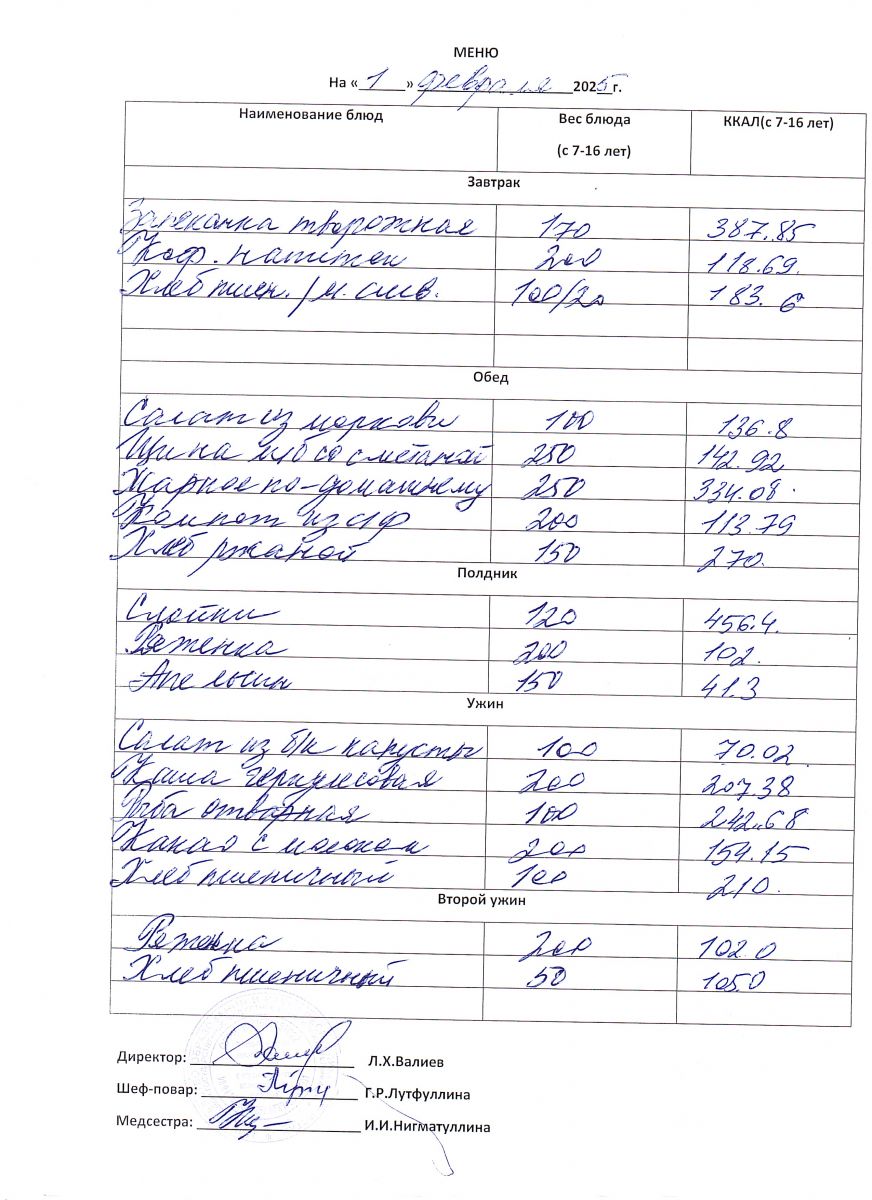 МЕНЮ
На «1» февраля 2025 г.
Наименование блюд Вес блюда (с 7-16 лет) ККАЛ(с 7-16 лет)
Завтрак
Запеканка творожная 170 387.85
Коф. напиток 200 118.69.
Хлеб пшен. / м. слив. 100/20 183. 6
Обед
Салат из моркови 100 136.8
Щи на м/б со сметаной 250 142.92
Жаркое по-домашнему 250 334.08
Компот из с/ф 200 113.79
Хлеб ржаной 150 270.
Полдник
Слойки 120 456.4.
Ряженка 200 102.
Апельсин 150 41.3
Ужин
Салат из б/к капусты 100 70.02
Каша геркулесовая 200 207.38
Рыба отварная 100 242.68
Какао с молоком 200 154.15
Хлеб пшеничный 100 210.
Второй ужин
Ряженка 200 102.0
Хлеб пшеничный 50 105.0
Директор: Л.Х.Валиев
Шеф-повар: Г.Р.Лутфуллина
Медсестра: И.И.Нигматуллина